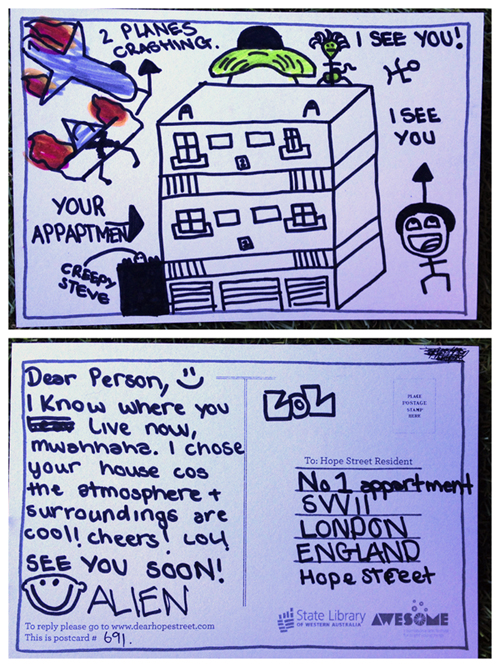 2 PLANES
CRASHING.
I SEE YOU!
I SEE
YOU
YOUR
APPAPTMENT
CREEPY
STEVE
Dear Person,
I Know where you
Live now,
mwahhaha. I chose
your house cos
the atmosphere +
surroundings are
cool! cheers! Lou
SEE YOU SOON!
ALIEN
To reply please go to www.dearhopestreet.com
This is postcard # 691.
LOL
PLEASE
POSTAGE
STAMP
HERE
To: Hope Street Resident
No 1 appartment
SW11
LONDON
ENGLAND
Hope Street
State Library
OF WESTERN AUSTRALIA
AWESOME